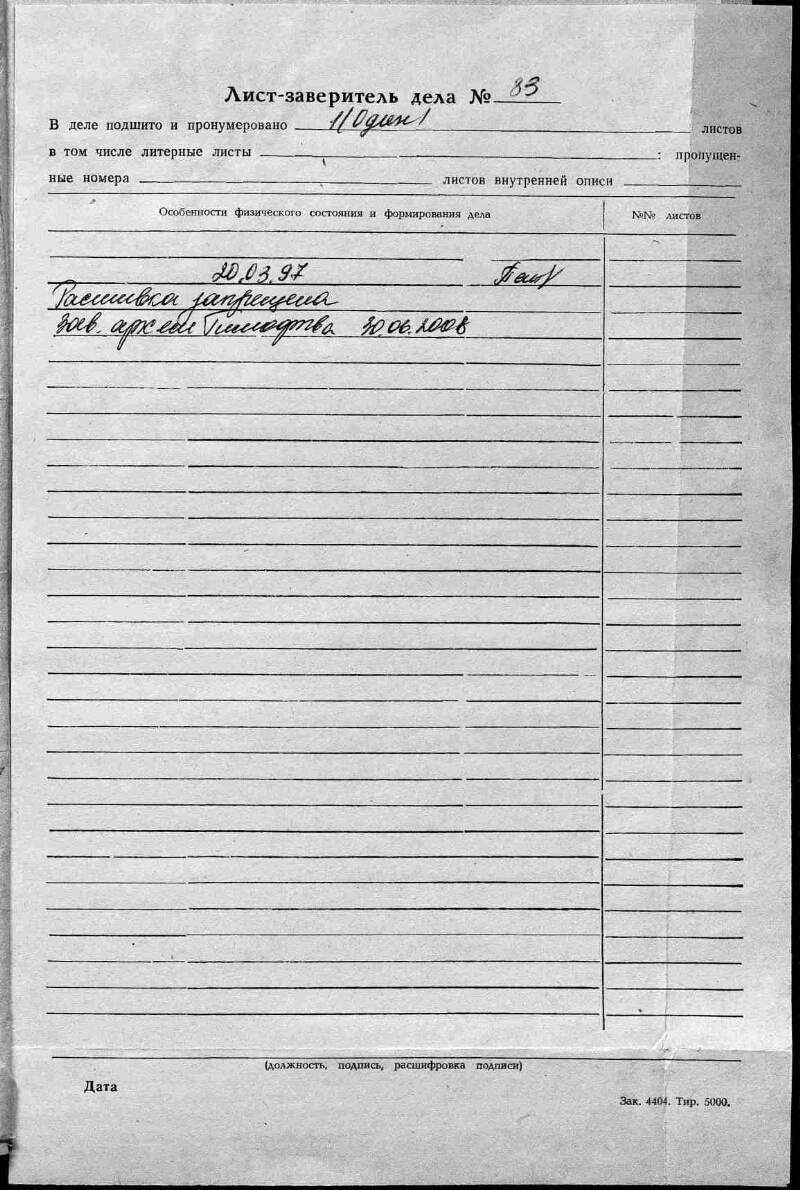 Лист-заверитель дела № 83
В деле подшито и пронумеровано 1 (Один) листов
в том числе литерные листы : пропущен-
ные номера листов внутренней описи
Особенности физического состояния и формирования дела №№ листов
20.03.97
Расшивка запрещена
30.06.2008
(должность, подпись, расшифровка подписи)
Дата
Зак. 4404. Тир. 5000.